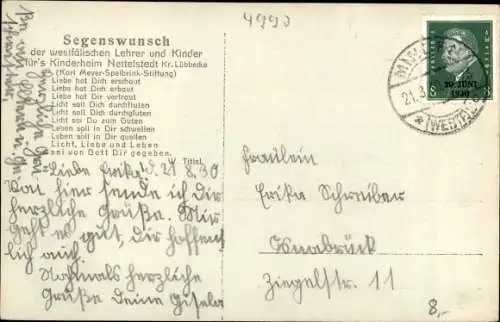 4990
Segenswunsch
der westfälischen Lehrer und Kinder
für's Kinderheim Nettelstedt Kr. Lübbecke
(Karl Meyer-Spelbrink-Stiftung)
Liebe hat Dich erschaut
Liebe hat Dich erbaut
Liebe hat Dir vertraut
Licht soll Dich durchfluten
Licht soll Dich durchgluten
Licht sei Du zum Guten
Leben soll in Dir schwellen
Leben soll in Dir quellen
Licht, Liebe und Leben
sei von Gott Dir gegeben.
Titzel
d. 21. 8. 30
Liebe Erika!
Von hier sende ich dir
herzliche Grüße. Mir
geht es gut, dir hoffent
lich auch.
Nochmals herzliche
Grüße Deine Gisela
30. JUNI
1930
8
21.
(WESTF.)
Fräulein
Erika Schreiber
Osnabrück
Ziegelstr. 11
8,-